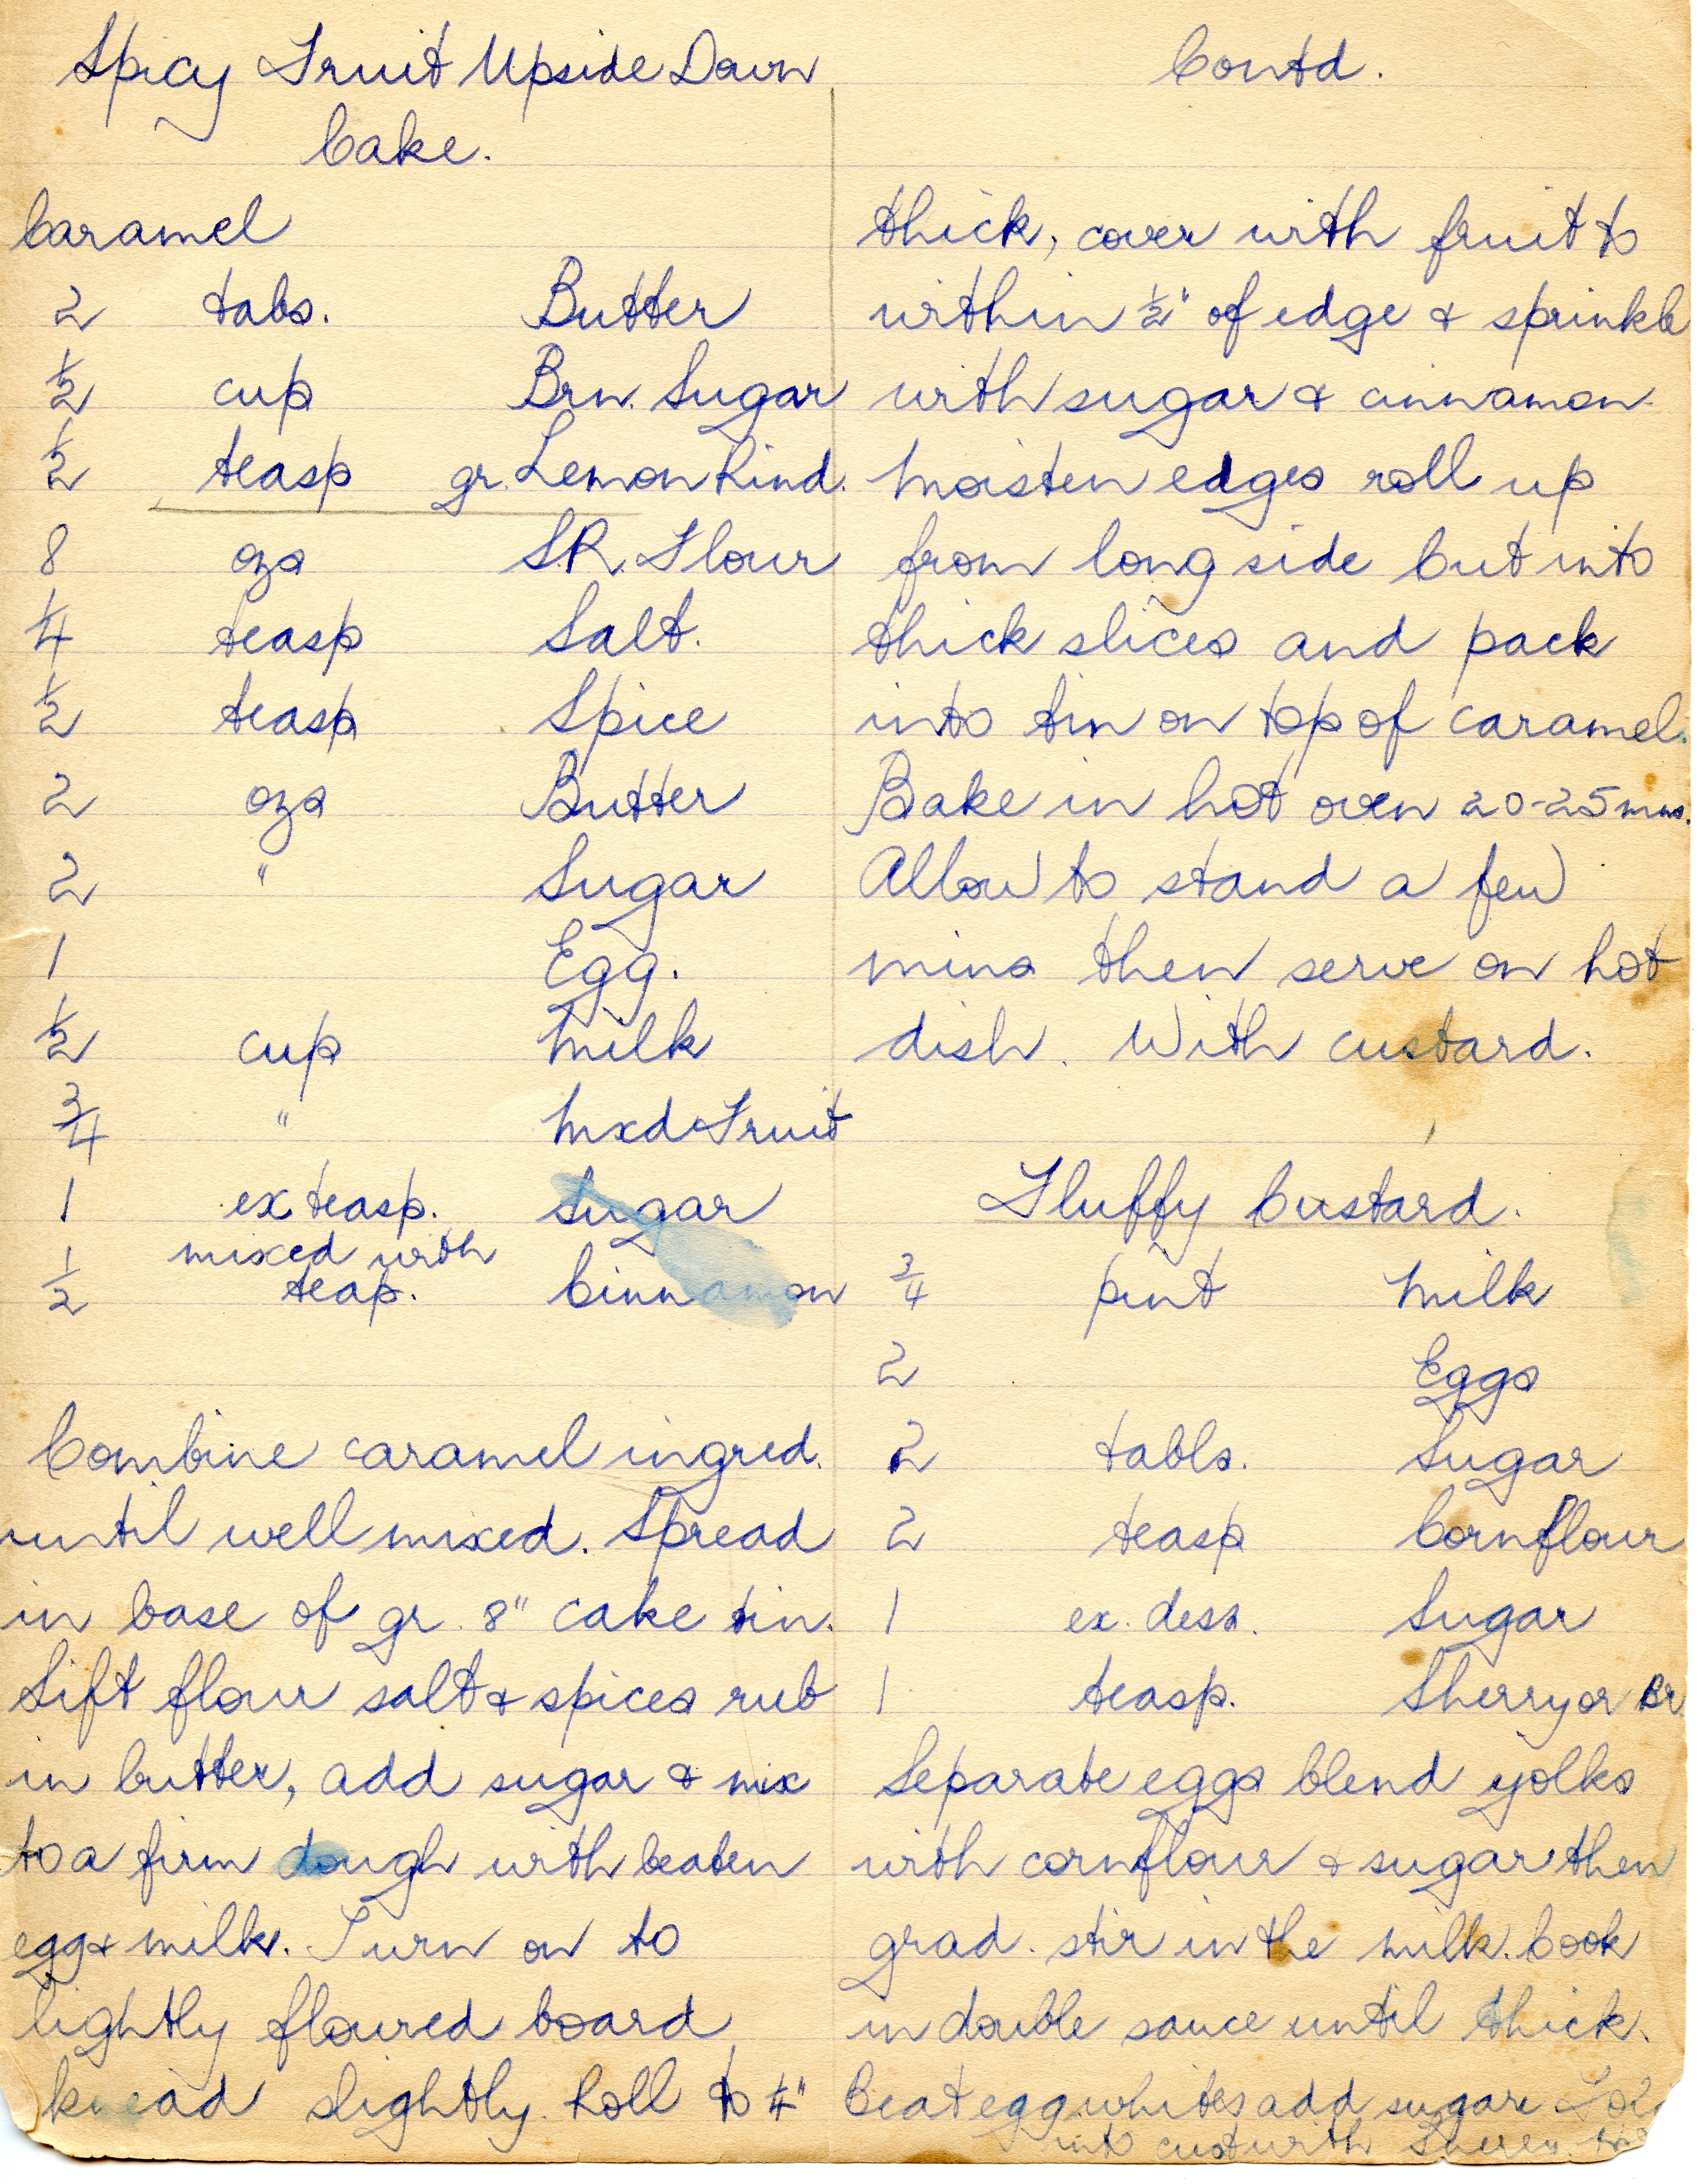 Spicy Fruit Upside Down
Cake.
Caramel
2 tabs. Butter
½ cup Brn. Sugar
½ teasp gr. Lemon Rind.
8 ozs S.R. Flour
¼ teasp Salt.
½ teasp Spice
2 ozs Butter
2 " Sugar
1 Egg.
½ cup Milk
¾ " Mxd Fruit
1 ex teasp. Sugar
mixed with
½ teap. Cinnamon
Combine caramel ingred.
until well mixed. Spread
in base of gr. 8" cake tin.
Sift flour salt & spices rub
in butter, add sugar & mix
to a firm dough with beaten
egg & milk. Turn on to
lightly floured board
knead slightly. Roll to ¼"
Contd.
thick, cover with fruit to
within ½" of edge & sprinkle
with sugar & cinnamon.
Moisten edges roll up
from long side cut into
thick slices and pack
into tin on top of caramel.
Bake in hot oven 20-25 mns.
Allow to stand a few
mins then serve on hot
dish. With custard.
Fluffy Custard.
¾ pint Milk
2 Eggs
2 tabls. Sugar
2 teasp Cornflour
1 ex. dess. Sugar
1 teasp. Sherry or Br
Separate eggs blend yolks
with cornflour & sugar then
grad. stir in the milk. Cook
in double sauce until thick.
Beat egg whites add sugar
into cust with